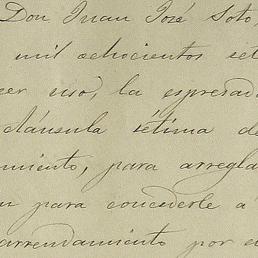 Don Juan José Soto,
mil ochocientos set
uso, la espresad
cláusula sétima de
miento, para arregla
para concederle á
arrendamiento por e